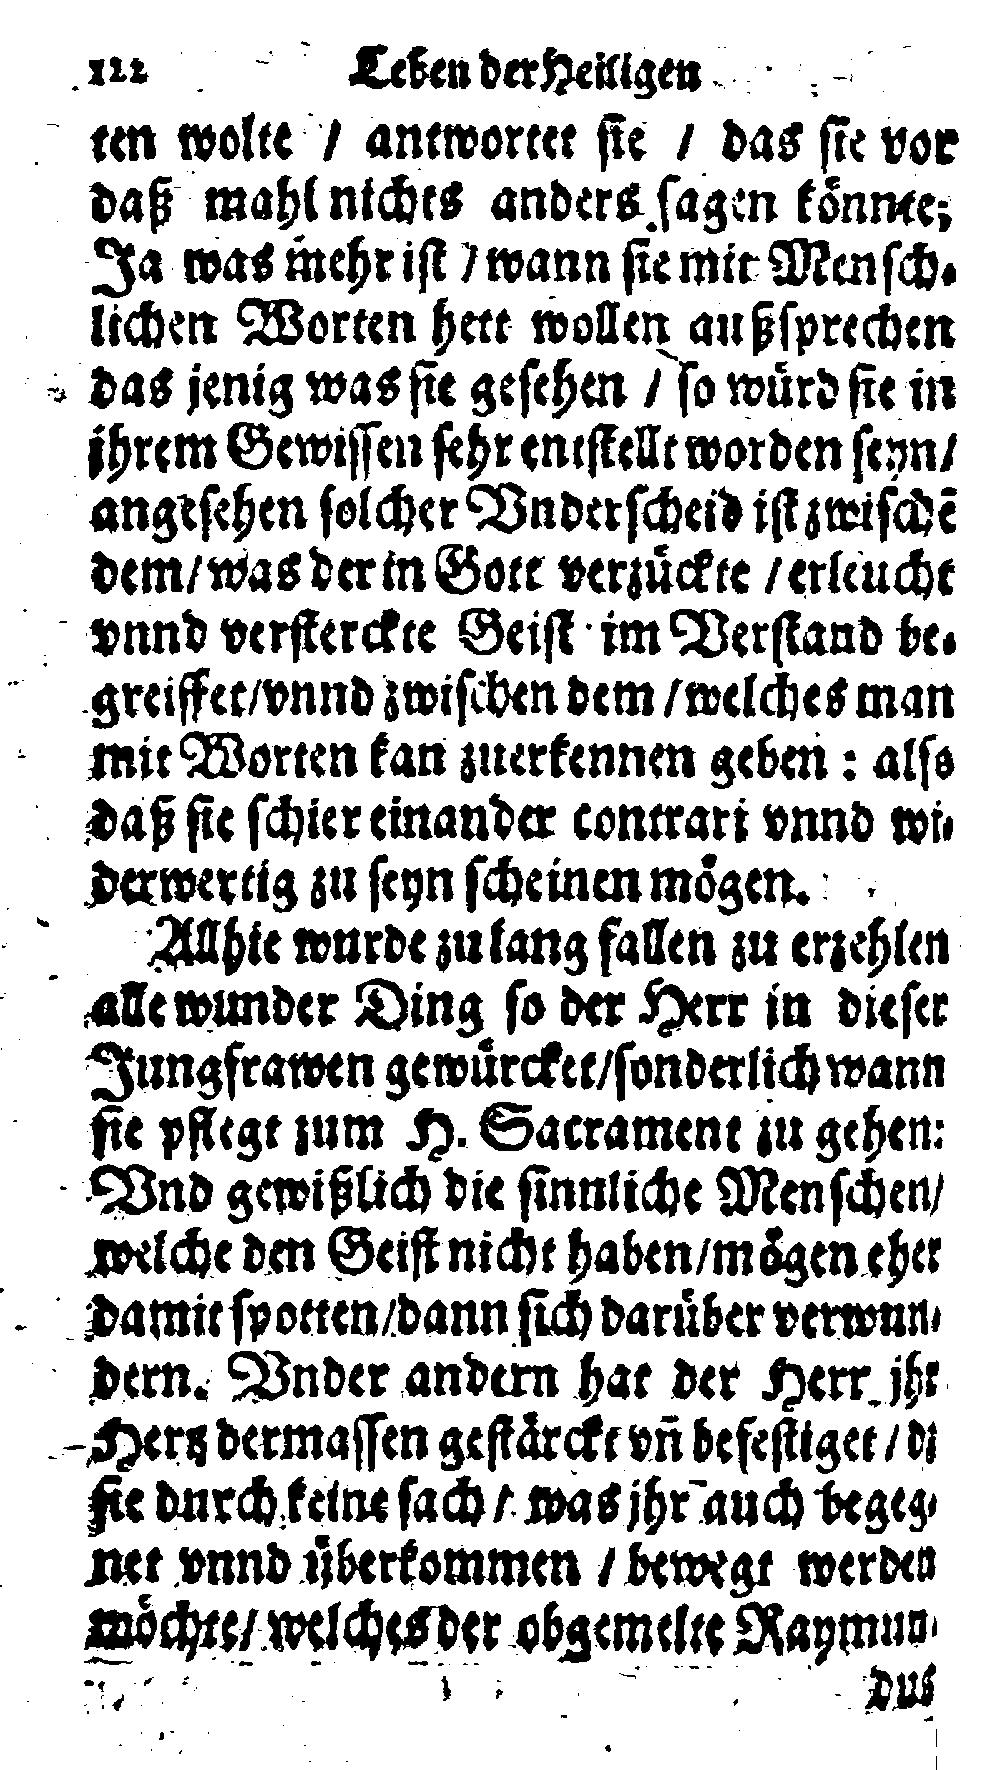 122 Leben der Heiligen
ten wolte / antwortet sie / das sie vor
daß mahl nichts anders sagen könnte;
Ja was mehr ist / wann sie mit Mensch-
lichen Worten hett wollen außsprechen
das jenig was sie gesehen / so würd sie in
jhrem Gewissen sehr entstellt worden seyn /
angesehen solcher Vnderscheid ist zwischē
dem / was der in Gott verzückte / erleucht
vnnd versterckte Geist im Verstand be-
greiffet / vnnd zwischen dem / welches man
mit Worten kan zuerkennen geben : also
daß sie schier einander contrari vnnd wi-
derwertig zu seyn scheinen mögen.
Allhie wurde zu lang fallen zu erzehlen
alle wunder Ding so der Herr in dieser
Jungfrawen gewürcket / sonderlich wann
sie pflegt zum H. Sacrament zu gehen:
Vnd gewißlich die sinnliche Menschen /
welche den Geist nicht haben / mögen eher
damit spotten / dann sich darüber verwun-
dern. Vnder andern hat der Herr jhr
Hertz dermassen gestärckt vn̄ befestiget / dz
sie durch keine sach / was jhr auch begeg-
net vnnd überkommen / bewegt werden
möchte / welches der obgemelte Raymun-
dus